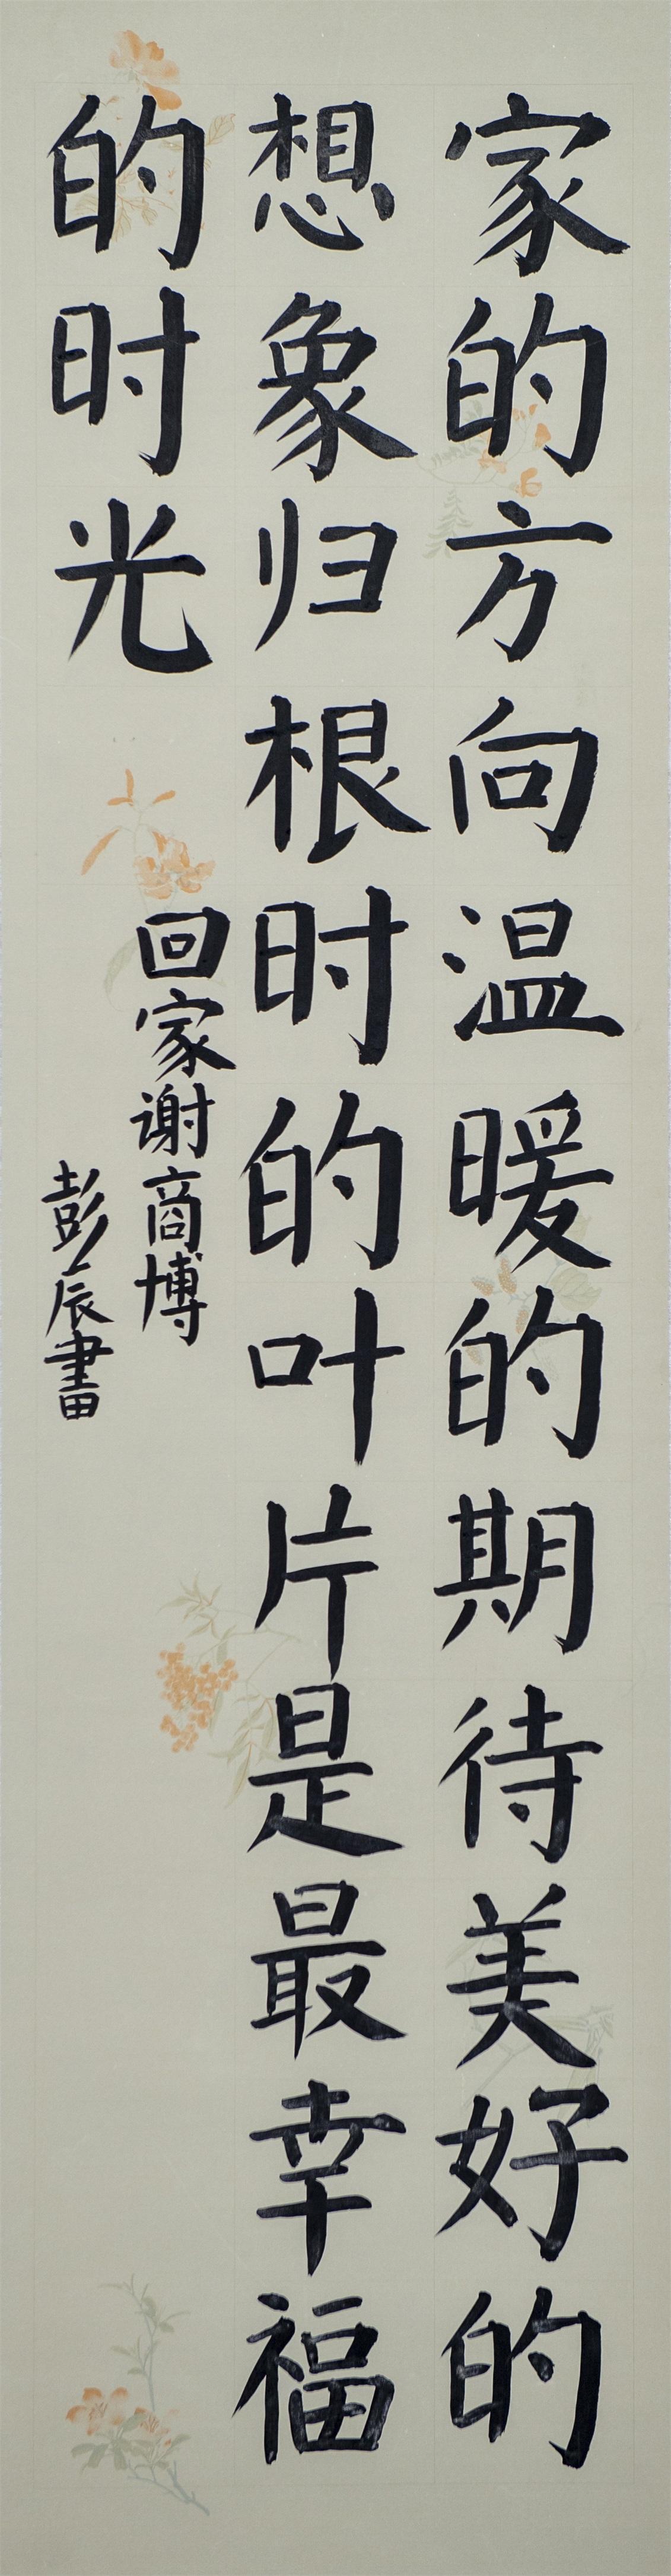 家的方向温暖的期待美好的
想象归根时的叶片是最幸福
的时光
回家谢商博
彭辰書